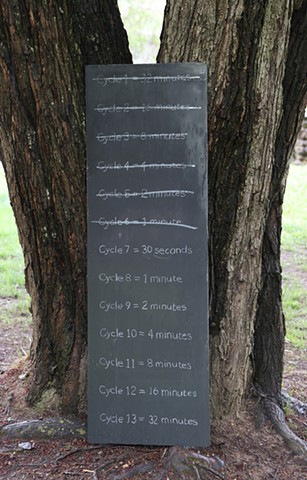 Cycle 1 = 32 minutes
Cycle 2 = 16 minutes
Cycle 3 = 8 minutes
Cycle 4 = 4 minutes
Cycle 5 = 2 minutes
Cycle 6 = 1 minute
Cycle 7 = 30 seconds
Cycle 8 = 1 minute
Cycle 9 = 2 minutes
Cycle 10 = 4 minutes
Cycle 11 = 8 minutes
Cycle 12 = 16 minutes
Cycle 13 = 32 minutes